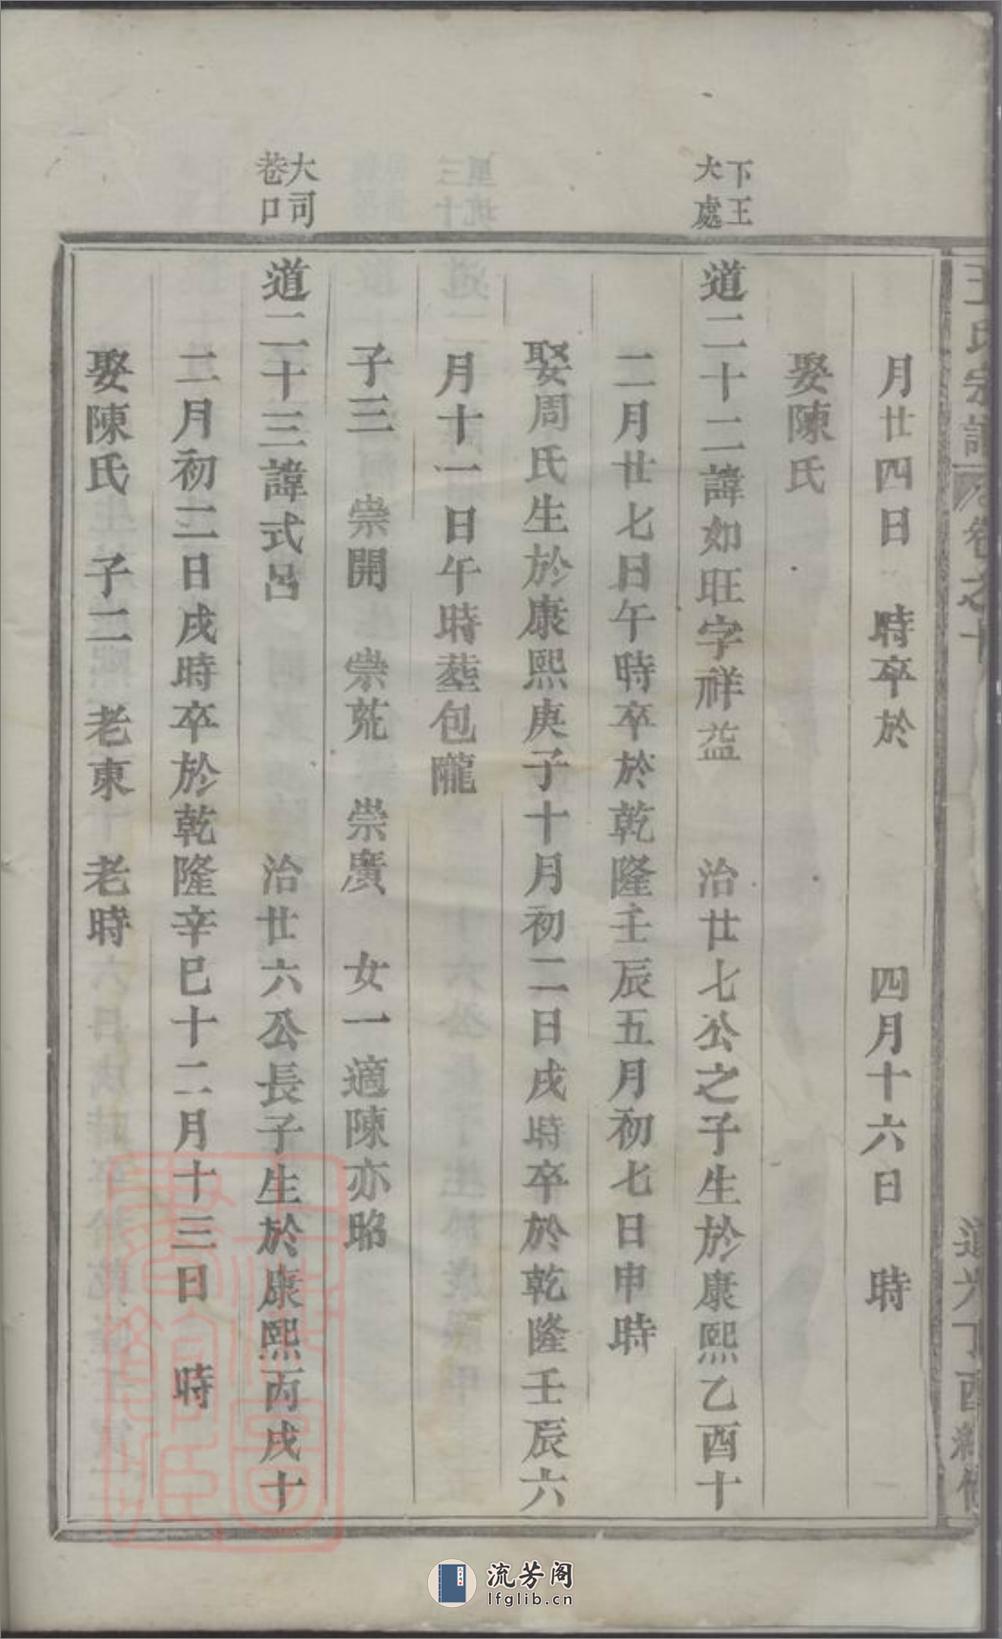 王氏宗譜 卷之十 道光丁酉
月廿四日 時卒於 四月十六日 時
娶陳氏
下王
大處
道二十二諱如旺字祥益 治廿七公之子生於康熙乙酉十
二月廿七日午時卒於乾隆壬辰五月初七日申時
娶周氏生於康熙庚子十月初二日戌時卒於乾隆壬辰六
月十一日午時塟包隴
子三 崇開 崇茺 崇廣 女一適陳亦昭
大司
巷口
道二十三諱式呂 治廿六公長子生於康熙丙戌十
二月初三日戌時卒於乾隆辛巳十二月十三日 時
娶陳氏 子二 老東 老時
流芳阁
lfglib.cn